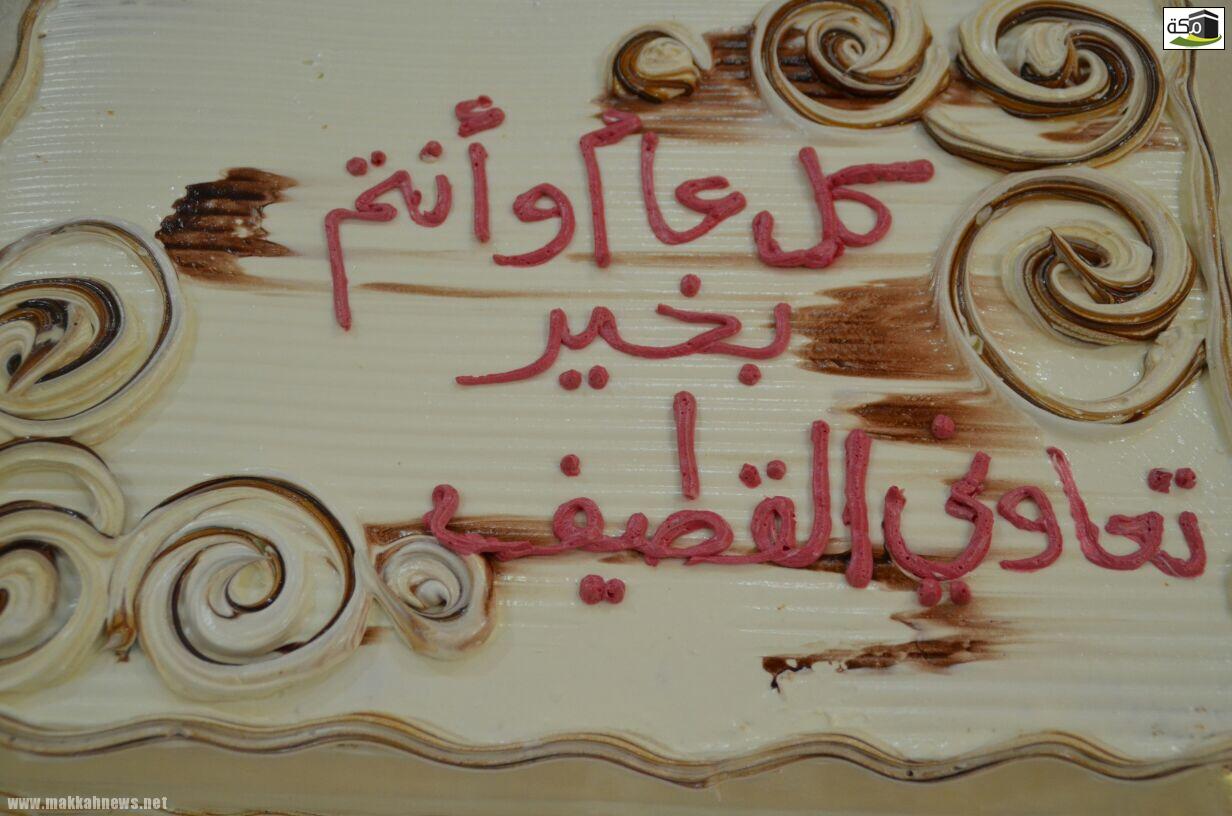 مكة
كل عام وأنتم
بخير
تعاوني القطيف
www.makkahnews.net